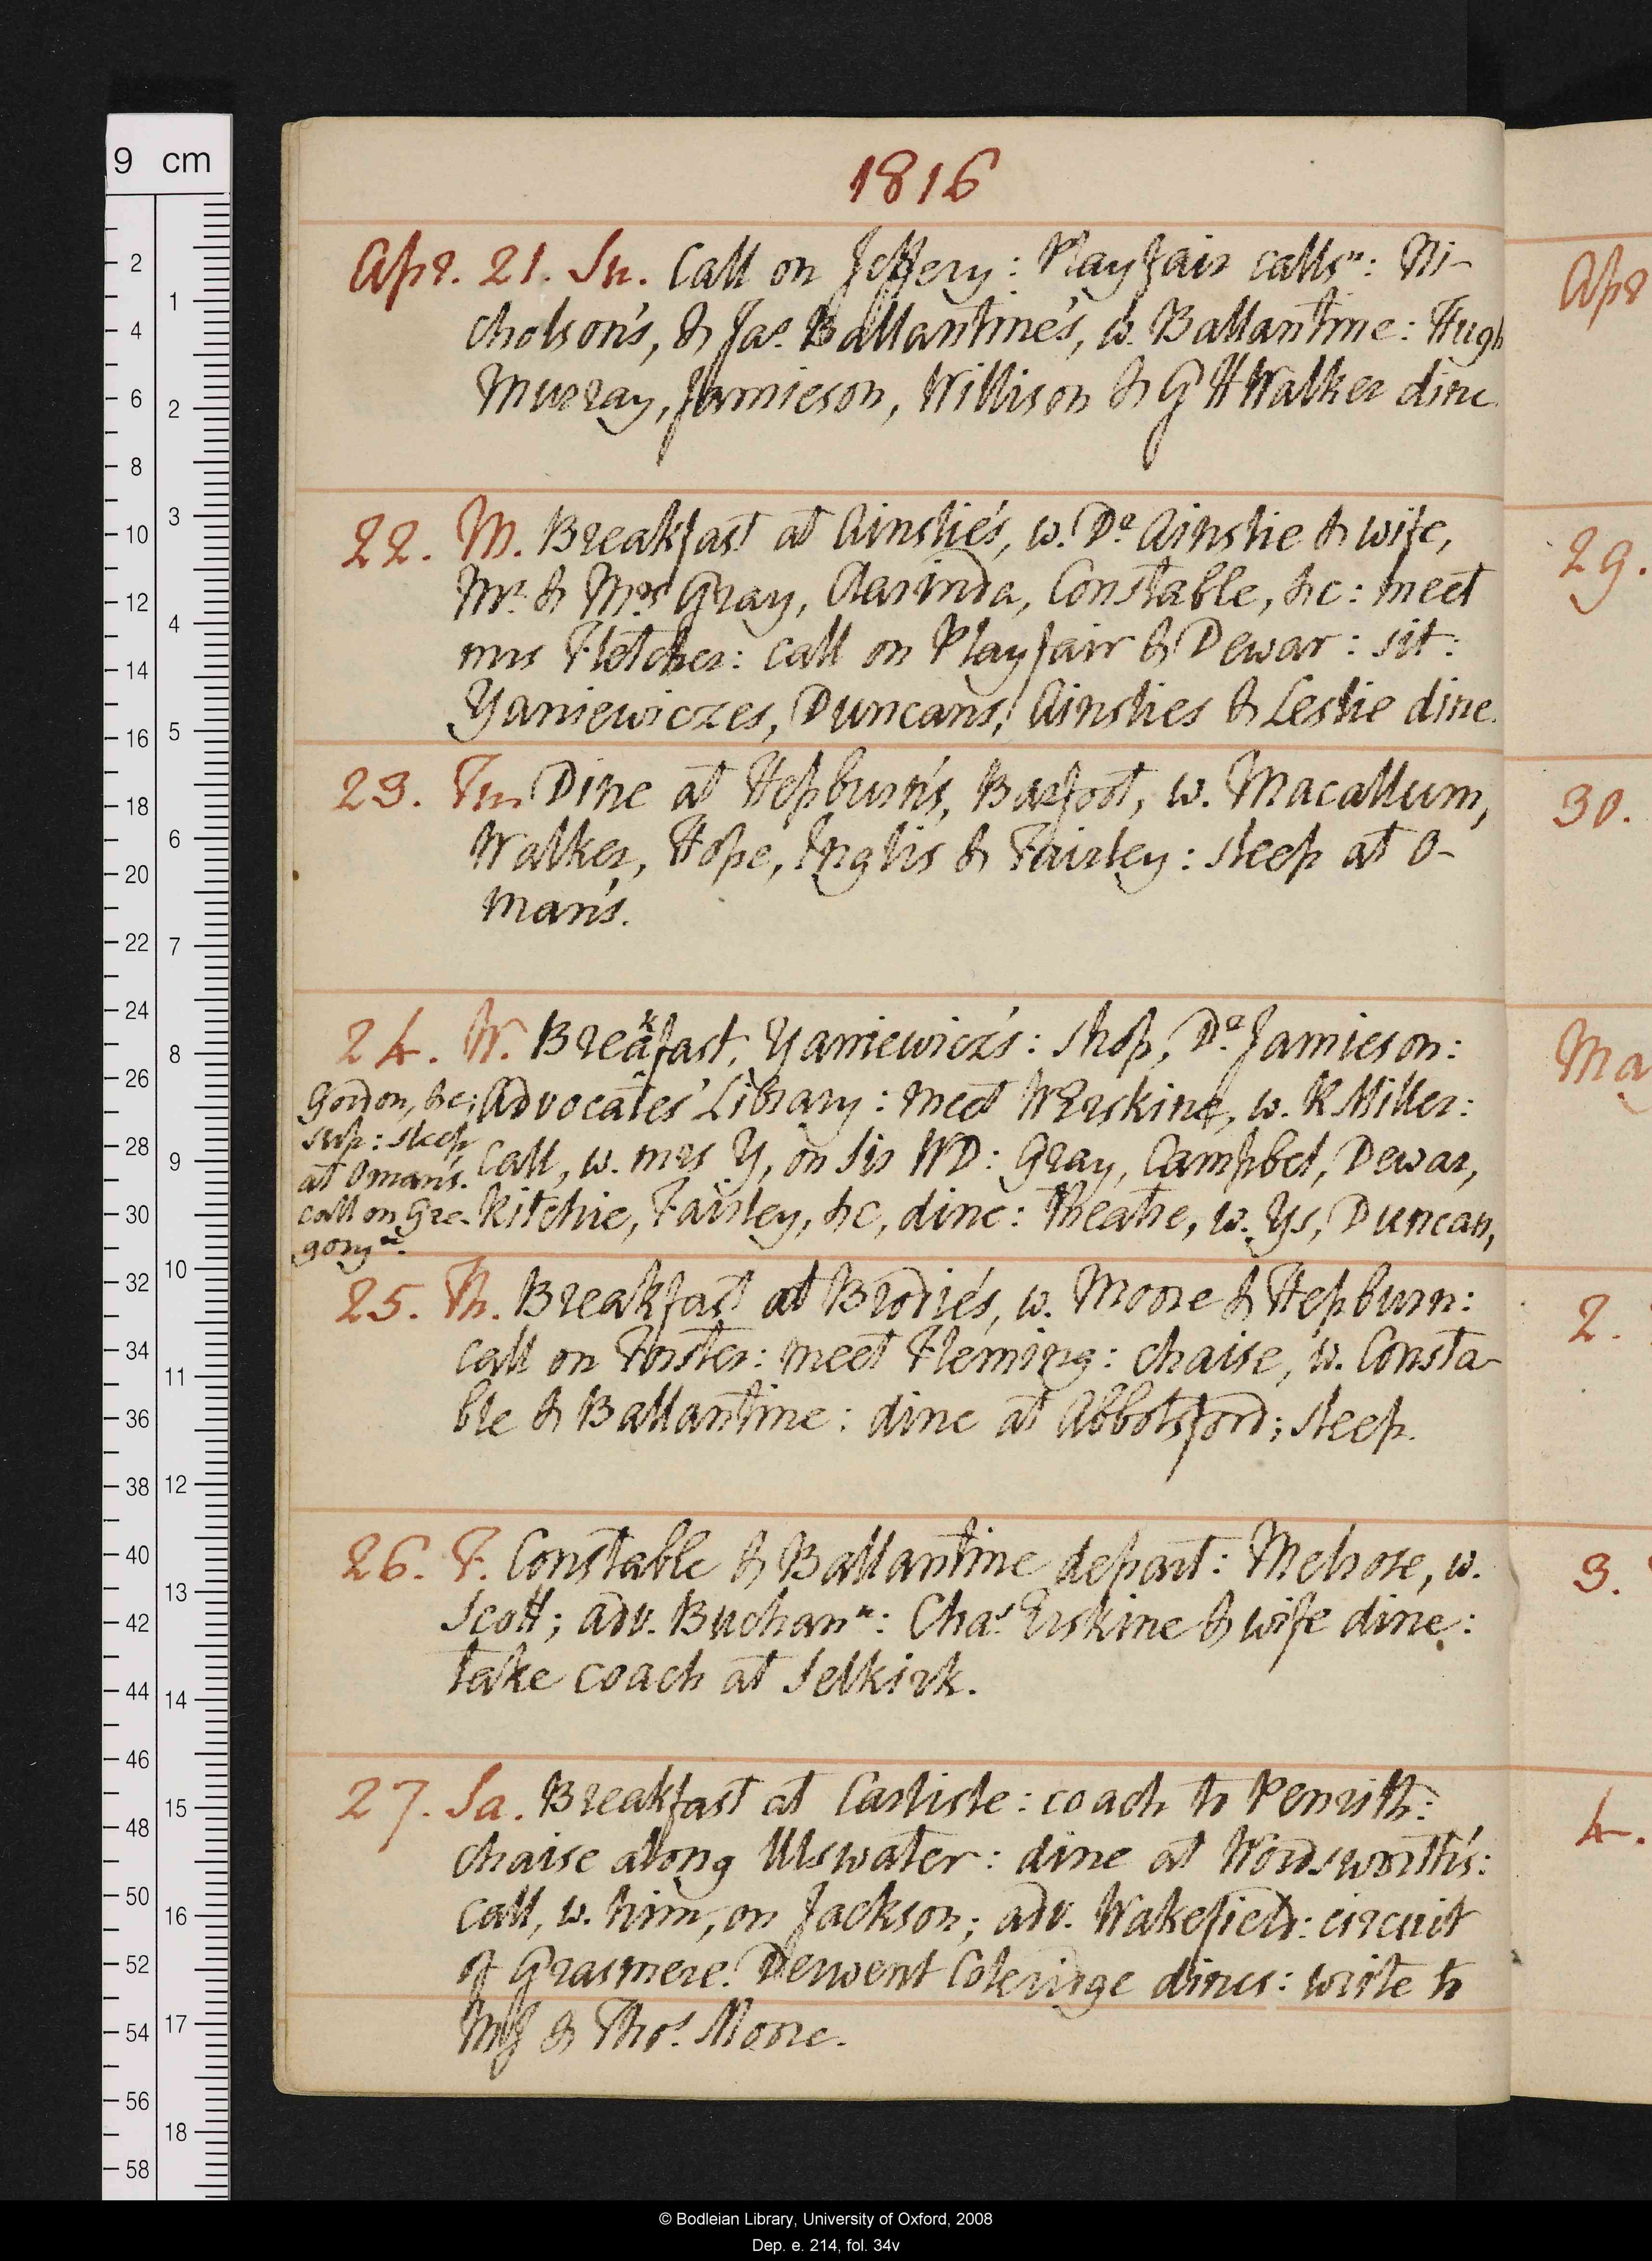 1816
Apr. 21. Su. Call on Jeffery: Playfair calls n: Ni-
cholson's, & Jas. Ballantine's, w. Ballantine: Hugh
Murray, Jamieson, Willison & G H Walker dine.
22. M. Breakfast at Ainslie's, w. Dr Ainslie & wife,
Mr. & Mrs Gray, Clarinda, Constable, &c: meet
mrs Fletcher: call on Playfair & Dewar: sit:
Yaniewiczes, Duncans, Ainslies & Leslie dine.
23. Tu. Dine at Hepburn's, Barfoot, w. Macallum,
Walker, Hope, Inglis & Fairley: sleep at O-
man's.
24. W. Breakfast, Yaniewicz's: shop, Dr Jamieson:
Advocates' Library: meet W Erskine, w. R Miller:
call, w. mrs Y, on Sir WD: Gray, Campbel, Dewar,
Ritchie, Fairley, &c, dine: theatre, w. Ys, Duncan,
Gordon, &c;
sup: sleep
at Oman's.
call on Gre-
gory n.
25. Th. Breakfast at Brodie's, w. Moore & Hepburn:
call on Forster: meet Fleming: chaise, w. Consta-
ble & Ballantine: dine at Abbotsford; sleep.
26. F. Constable & Ballantine depart: Melrose, w.
Scott; adv. Buchan n: Chas Erskine & wife dine:
take coach at Selkirk.
27. Sa. Breakfast at Carlisle: coach to Penrith:
chaise along Ulswater: dine at Wordsworth's:
call, w. him, on Jackson; adv. Wakefield: circuit
of Grasmere. Derwent Coleridge dines: write to
MJ & Thos. Moore.
Apr
29.
30.
Ma
2.
3.
4.
9 cm
2
4
6
8
10
12
14
16
18
20
22
24
26
28
30
32
34
36
38
40
42
44
46
48
50
52
54
56
58
1
2
3
4
5
6
7
8
9
10
11
12
13
14
15
16
17
18
© Bodleian Library, University of Oxford, 2008
Dep. e. 214, fol. 34v